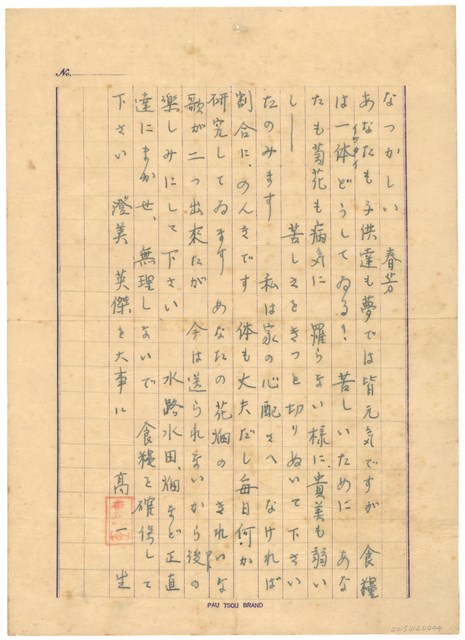 No.
なつかしい　春芳
あなたも子供達も夢では皆元気ですが　食糧
は一体どうしてゐる?　苦しいために　あな
イッタイ
たも菊花も病気に　羅らない様に、貴美も弱い
し——　苦しさをきつと切りぬいて下さい
たのみます　私は家の心配さへ　なければ
割合に、のんきです　体も丈夫だし毎日何か
研究してゐます　あなたの花畑の　きれいな
歌が二つ出来たが　今は送られないから後の
楽しみにして下さい　水路水田、畑など正直
達にまかせ、無理しないで　食糧を確保して
下さい　澄美　英傑を大事に　高一生
PAU TSOU BRAND
2015.112.0004